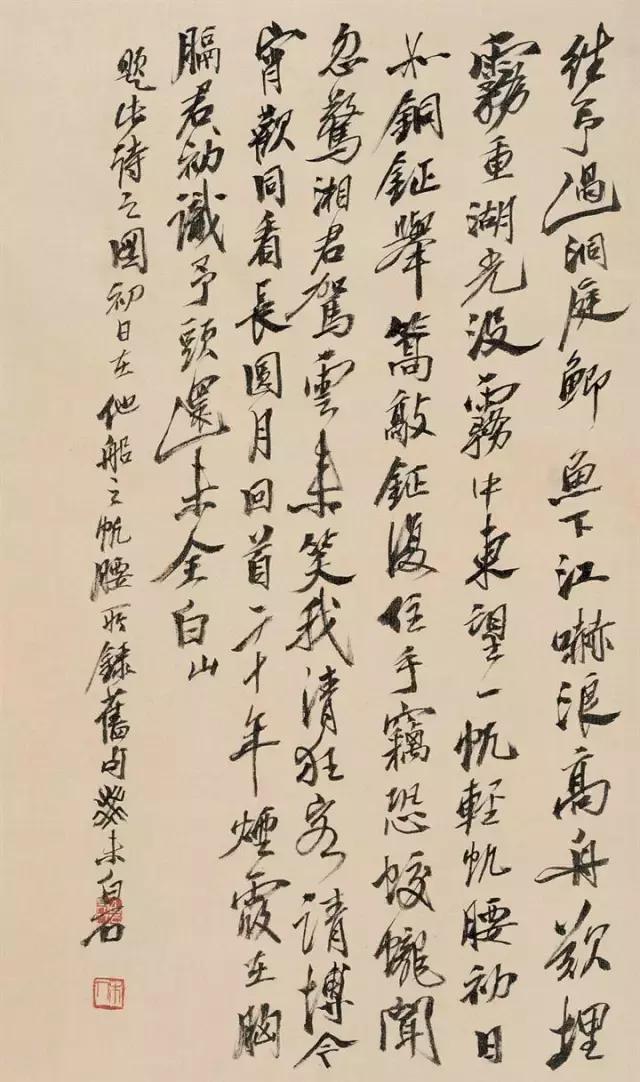 往予過洞庭鯽魚下江嚇浪高舟欲埋
霧重湖光没霧中東望一帆輕帆腰初日
如銅鉦舉篙敲鉦復住手竊恐蛟龍聞
忽驚湘君駕雲來笑我清狂客請博今
宵歡同看長圓月回首二十年煙霞在胸
膈君初識予頭還未全白山
題此詩之圖初日在他船之帆腰錄舊句癸未白石
木人